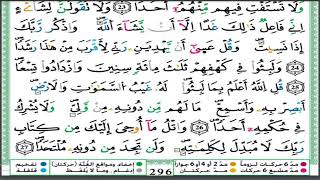 وَلَا تَسْتَفْتِ فِيهِم مِّنْهُمْ أَحَدًا ﴿22﴾ وَلَا تَقُولَنَّ لِشَا۟ىْءٍ
إِنِّي فَاعِلٌ ذَٰلِكَ غَدًا ﴿23﴾ إِلَّا أَن يَشَاءَ اللَّهُ ۚ وَاذْكُر رَّبَّكَ
إِذَا نَسِيتَ وَقُلْ عَسَىٰ أَن يَهْدِيَنِ رَبِّي لِأَقْرَبَ مِنْ هَٰذَا رَشَدًا
﴿24﴾ وَلَبِثُوا فِي كَهْفِهِمْ ثَلَاثَ مِائَةٍ سِنِينَ وَازْدَادُوا تِسْعًا
﴿25﴾ قُلِ اللَّهُ أَعْلَمُ بِمَا لَبِثُوا ۖ لَهُ غَيْبُ السَّمَاوَاتِ وَالْأَرْضِ ۖ
أَبْصِرْ بِهِ وَأَسْمِعْ ۚ مَا لَهُم مِّن دُونِهِ مِن وَلِيٍّ وَلَا يُشْرِكُ
فِي حُكْمِهِ أَحَدًا ﴿26﴾ وَاتْلُ مَا أُوحِيَ إِلَيْكَ مِن كِتَابِ
رَبِّكَ ۖ لَا مُبَدِّلَ لِكَلِمَاتِهِ وَلَن تَجِدَ مِن دُونِهِ مُلْتَحَدًا ﴿27﴾
296